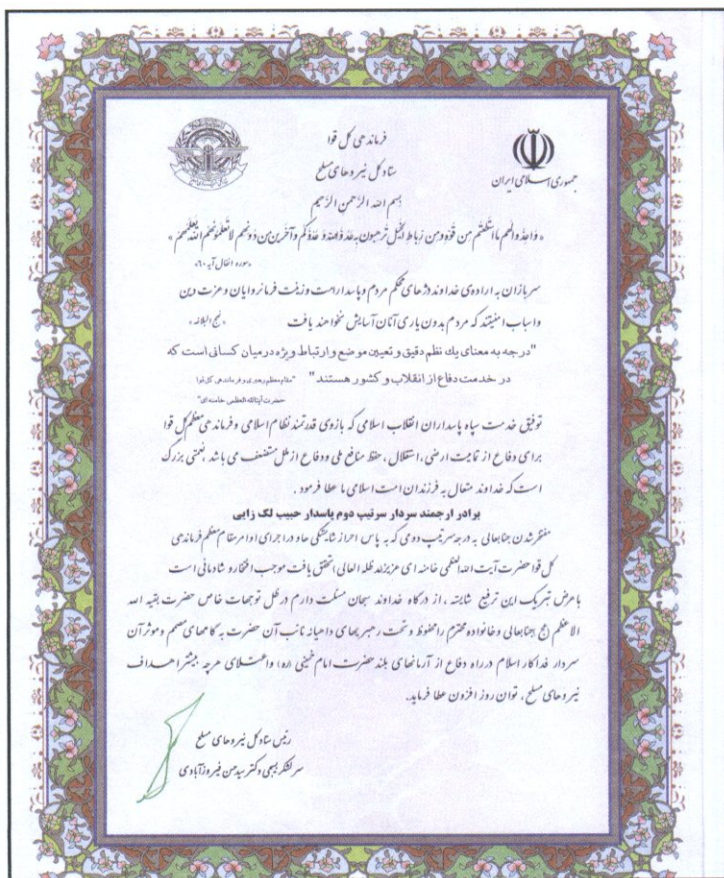 فرماندهی کل قوا
ستاد کل نیروهای مسلح
جمهوری اسلامی ایران
بسم الله الرحمن الرحیم
« وَاَعِدّوا لَهُم مَا اسْتَطَعْتُم مِن قُوَّةٍ وَمِن رِباطِ الْخَیْلِ تُرْهِبُونَ بِهِ عَدُوَّ اللهِ وَ عَدُوَّکُم وَآخَرینَ مِن دُونِهِم لا تَعْلَمُونَهُم اللهُ یَعْلَمُهُم »
«سوره انفال آیه ۶۰»
سربازان به اراده‌ی خداوند دژهای محکم مردم و پاسدار امت و زینت فرمانروایان و عزت دین
و اسباب امنیتند که مردم بدون یاری آنان آسایش نخواهند یافت « نهج البلاغه »
"درجه به معنای یك نظم دقیق و تعیین موضع و ارتباط ویژه درمیان کسانی است که
در خدمت دفاع از انقلاب و کشور هستند" "مقام معظم رهبری و فرماندهی کل قوا
حضرت آیت‌الله العظمی خامنه ای"
توفیق خدمت سپاه پاسداران انقلاب اسلامی که بازوی قدرتمند نظام اسلامی و فرماندهی معظم کل قوا
برای دفاع از تمامیت ارضی، استقلال، حفظ منافع ملی و دفاع از ملل مستضعف می باشد، نعمتی بزرگ
است که خداوند متعال به فرزندان امت اسلامی ما عطا فرمود .
برادر ارجمند سردار سرتیپ دوم پاسدار حبیب لک زایی
مفتخر شدن جنابعالی به درجه سرتیپ دومی که به پاس احراز شایستگی ها و در اجرای اوامر مقام معظم فرماندهی
کل قوا حضرت آیت الله العظمی خامنه ای عزیز(مد ظله العالی) تحقق یافت موجب افتخار و شادمانی است
با عرض تبریک این ترفیع شایسته ، از درگاه خداوند سبحان مسئلت دارم در ظل توجهات خاص حضرت بقیه الله
الاعظم (عج) جنابعالی و خانواده محترم را محفوظ و تحت رهبریهای داهیانه نائب آن حضرت به گامهای مصمم و موثر آن
سردار فداکار اسلام در راه دفاع از آرمانهای بلند حضرت امام خمینی (ره) و اعتلای هرچه بیشتر اهداف
نیروهای مسلح ، توان روز افزون عطا فرماید.
رئیس ستاد کل نیروهای مسلح
سرلشکر بسیجی دکتر سید حسن فیروزآبادی